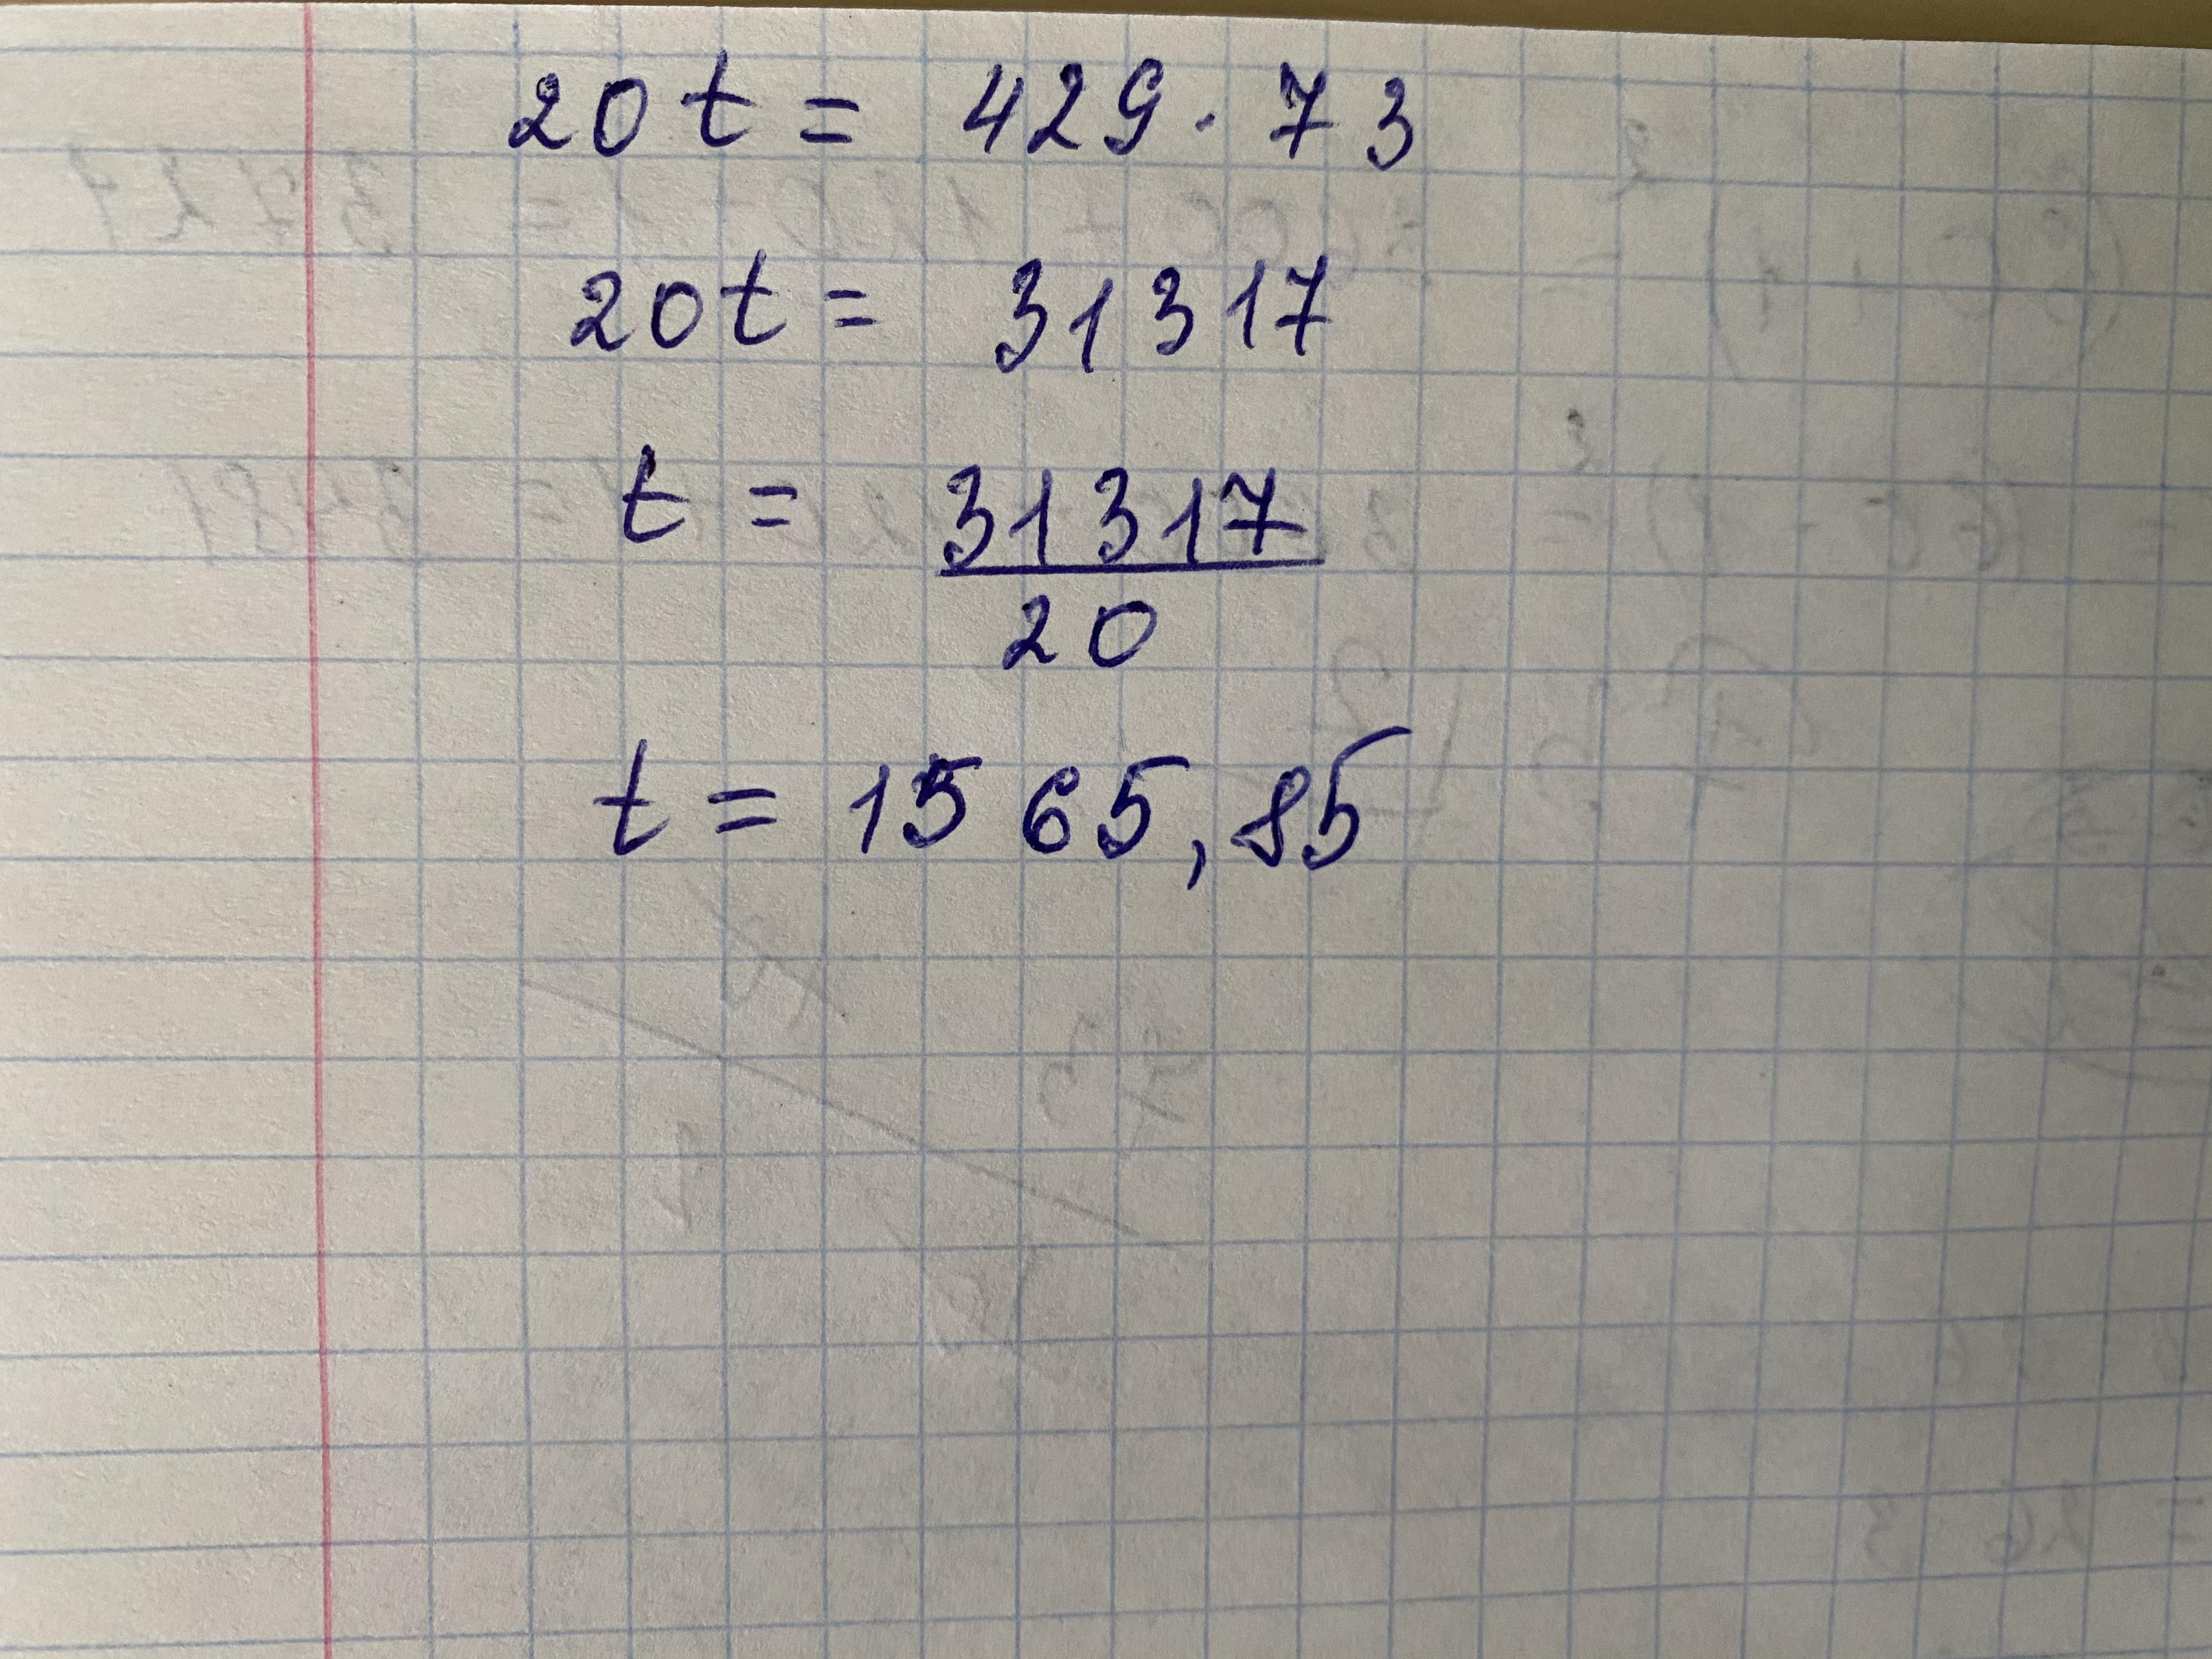 20t = 429 · 73
20t = 31317
t = 31317
20
t = 1565,85